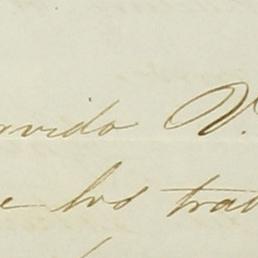 ervido V.
e los trab